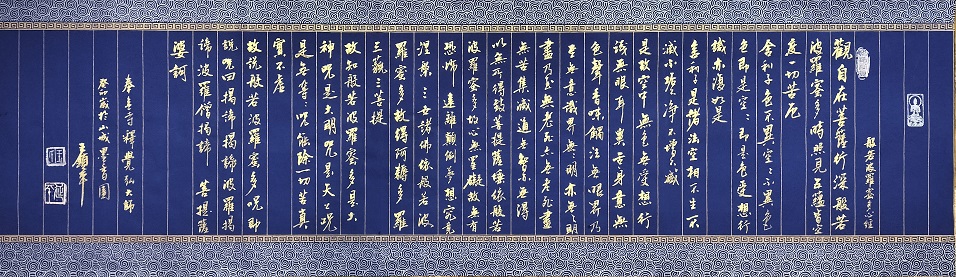 般若波羅蜜多心經
觀自在菩薩行深般若
波羅蜜多時照見五蘊皆空
度一切苦厄
舍利子色不異空空不異色
色即是空空即是色受想行
識亦復如是
舍利子是諸法空相不生不
滅不垢不淨不增不減
是故空中無色無受想行
識無眼耳鼻舌身意無
色聲香味觸法無眼界乃
至無意識界無無明亦無無明
盡乃至無老死亦無老死盡
無苦集滅道無智亦無得
以無所得故菩提薩埵依般若
波羅蜜多故心無罣礙故無有
恐怖遠離顛倒夢想究竟
涅槃三世諸佛依般若波
羅蜜多故得阿耨多羅
三藐三菩提
故知般若波羅蜜多是大
神咒是大明咒是無上咒
是無等等咒能除一切苦真
實不虛
故說般若波羅蜜多咒即
說咒曰揭諦揭諦波羅揭
諦波羅僧揭諦 菩提薩
婆訶
寺釋覺弘大師
癸卯歲於山城墨香園